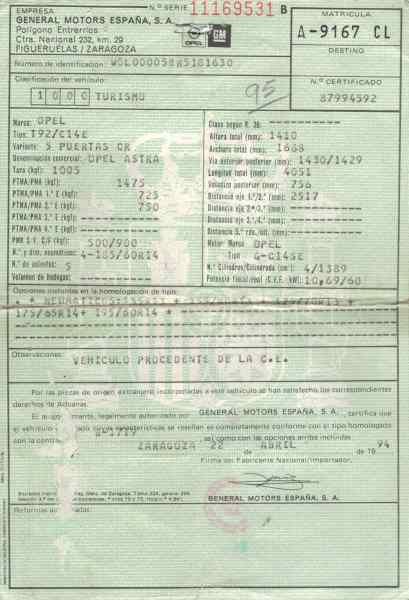 EMPRESA
GENERAL MOTORS ESPAÑA, S. A.
Polígono Entrerríos
Ctra. Nacional 232, km. 29
FIGUERUELAS / ZARAGOZA
N.º SERIE 11169531 B
OPEL
GM
MATRICULA
A-9167 CL
DESTINO
Número de identificación: W0L000058R5181630
Clasificación del vehículo:
1000 TURISMO
95
N.º CERTIFICADO
87994592
Marca: OPEL
Tipo: T92/C14E
Variante: 5 PUERTAS CR
Denominación comercial: OPEL ASTRA
Tara (kgf): 1005
PTMA/PMA (kgf): 1475
PTMA/PMA 1.º E (kgf): 725
PTMA/PMA 2.º E (kgf): 750
PTMA/PMA 3.º E (kgf): ----------
PTMA/PMA 4.º E (kgf): ----------
PMR S/F. C/F (kgf) 500/900
N.º y dim. neumáticos: 4-185/60R14
N.º de asientos: 5
Volumen de bodegas: ----------
Clase según R. 36: ----------
Altura total (mm): 1410
Anchura total (mm): 1668
Vía anterior posterior (mm): 1430/1429
Longitud total (mm): 4051
Voladizo posterior (mm): 756
Distancia eje 1.º/2.º (mm): 2517
Distancia eje 2.º/3.º (mm): ----------
Distancia eje 3.º/4.º (mm): ----------
Distancia 5.ª rda./últ. (mm): ----------
Motor: Marca OPEL
Tipo G-C14SE
N.º Cilindros/Cilindrada (cm³): 4/1389
Potencia fiscal/real (C.V.F. kW) 10,69/60
Opciones incluidas en la homologación de tipo:
175/65R14 * 195/60R14 *
Observaciones:
VEHICULO PROCEDENTE DE LA C.E.
Por las piezas de origen extranjero incorporadas a este vehículo se han satisfecho los correspondientes
derechos de Aduanas.
legalmente autorizado por GENERAL MOTORS ESPAÑA, S. A., certifica que
el vehículo cuyas características se reseñan es completamente conforme con el tipo homologado
con la contra así como con las opciones arriba incluidas.
ZARAGOZA 22 de ABRIL de 19 94
Firma del Fabricante Nacional/Importador,
GENERAL MOTORS ESPAÑA, S. A.
Reformas